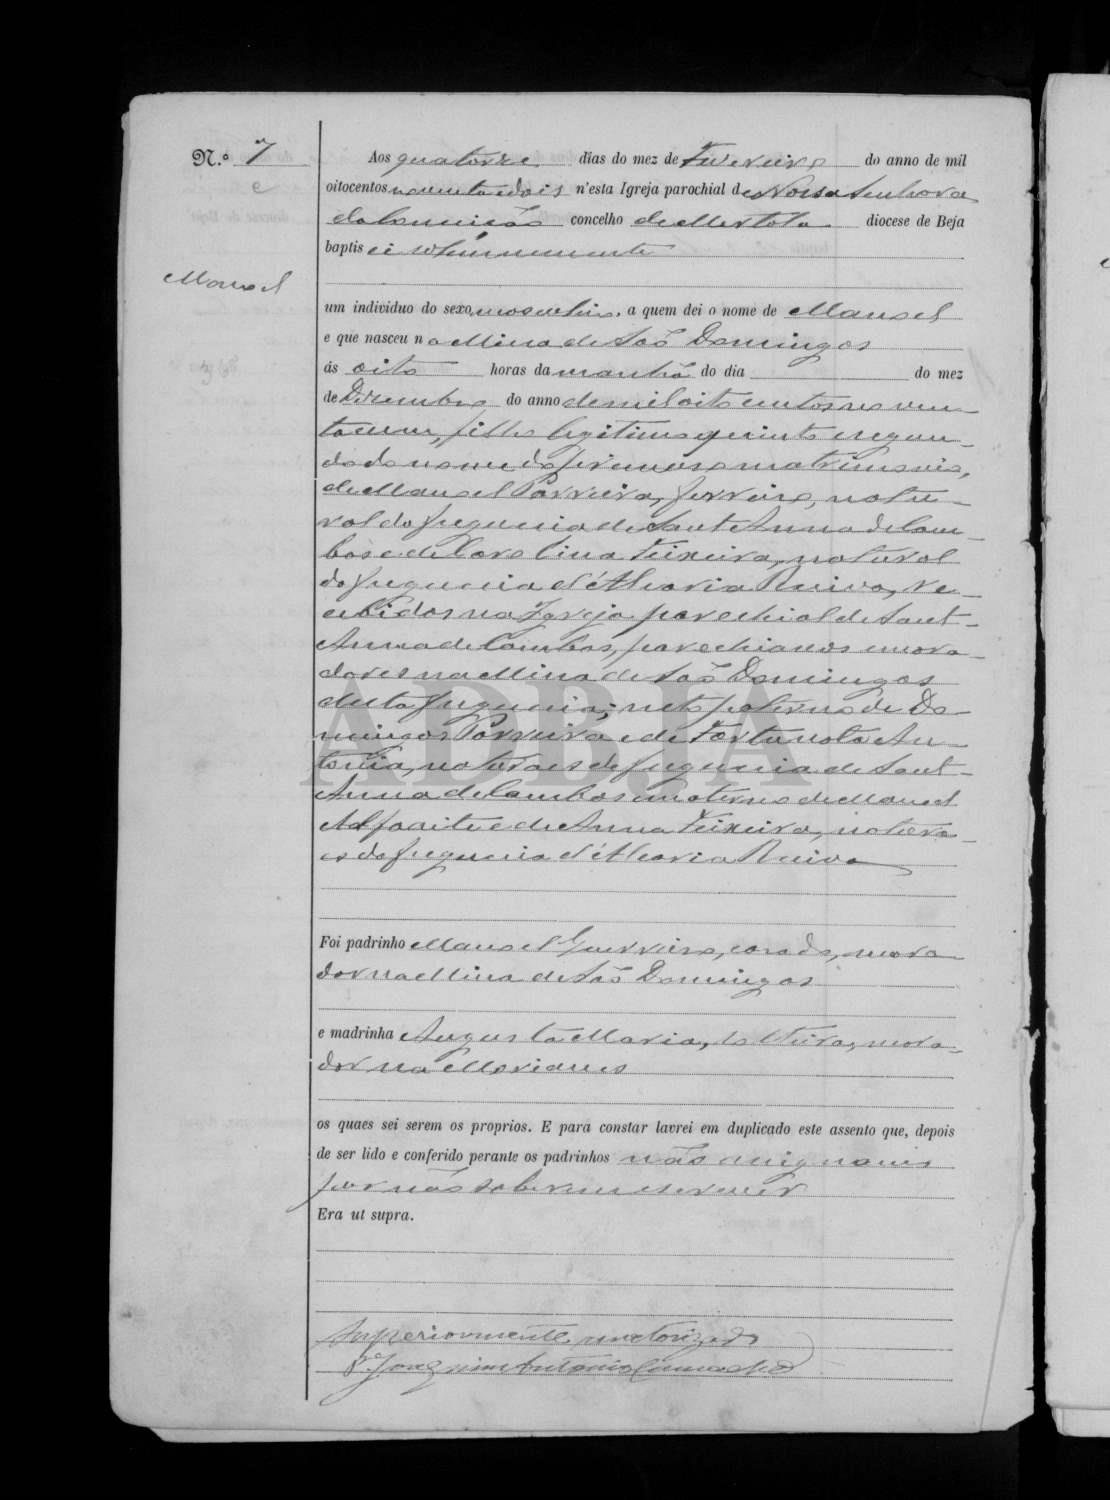 N.º 7
Aos quatorze dias do mez de Fevereiro do anno de mil
oitocentos noventa e dois n'esta Igreja parochial de Nossa Senhora
da Conceição concelho de Mertola diocese de Beja
baptisei solemnemente
Manoel
um individuo do sexo masculino, a quem dei o nome de Manoel
e que nasceu na Mina de São Domingos
ás oito horas da manhã do dia do mez
de Dezembro do anno de mil oitocentos noven-
ta e um, filho legitimo quinto e segun-
do do nome do primeiro matrimonio,
de Manoel Parreira, ferreiro, natu-
ral da freguesia de Sant Anna de Cam-
bas e de Carolina Teixeira, natural
da freguesia d'Alcaria Ruiva, re-
cebidos na Igreja parochial de Sant-
Anna de Cambas, parochianos e mora-
dores na Mina de São Domingos
desta freguesia; neto paterno de Do-
mingos Parreira e de Fortunata An-
tonia, naturaes da freguesia de Sant-
Anna de Cambas e materno de Manoel
e de Anna Teixeira, natura-
es da freguesia d'Alcaria Ruiva
Foi padrinho Manoel Guerreiro, casado, mora-
dor na Mina de São Domingos
e madrinha Augusta Maria, solteira, mora-
dor na
os quaes sei serem os proprios. E para constar lavrei em duplicado este assento que, depois
de ser lido e conferido perante os padrinhos não assignaram
por não saberem escrever
Era ut supra.
Superiormente auctorizado
P.e Joaquim Antonio Camacho
ADBJA